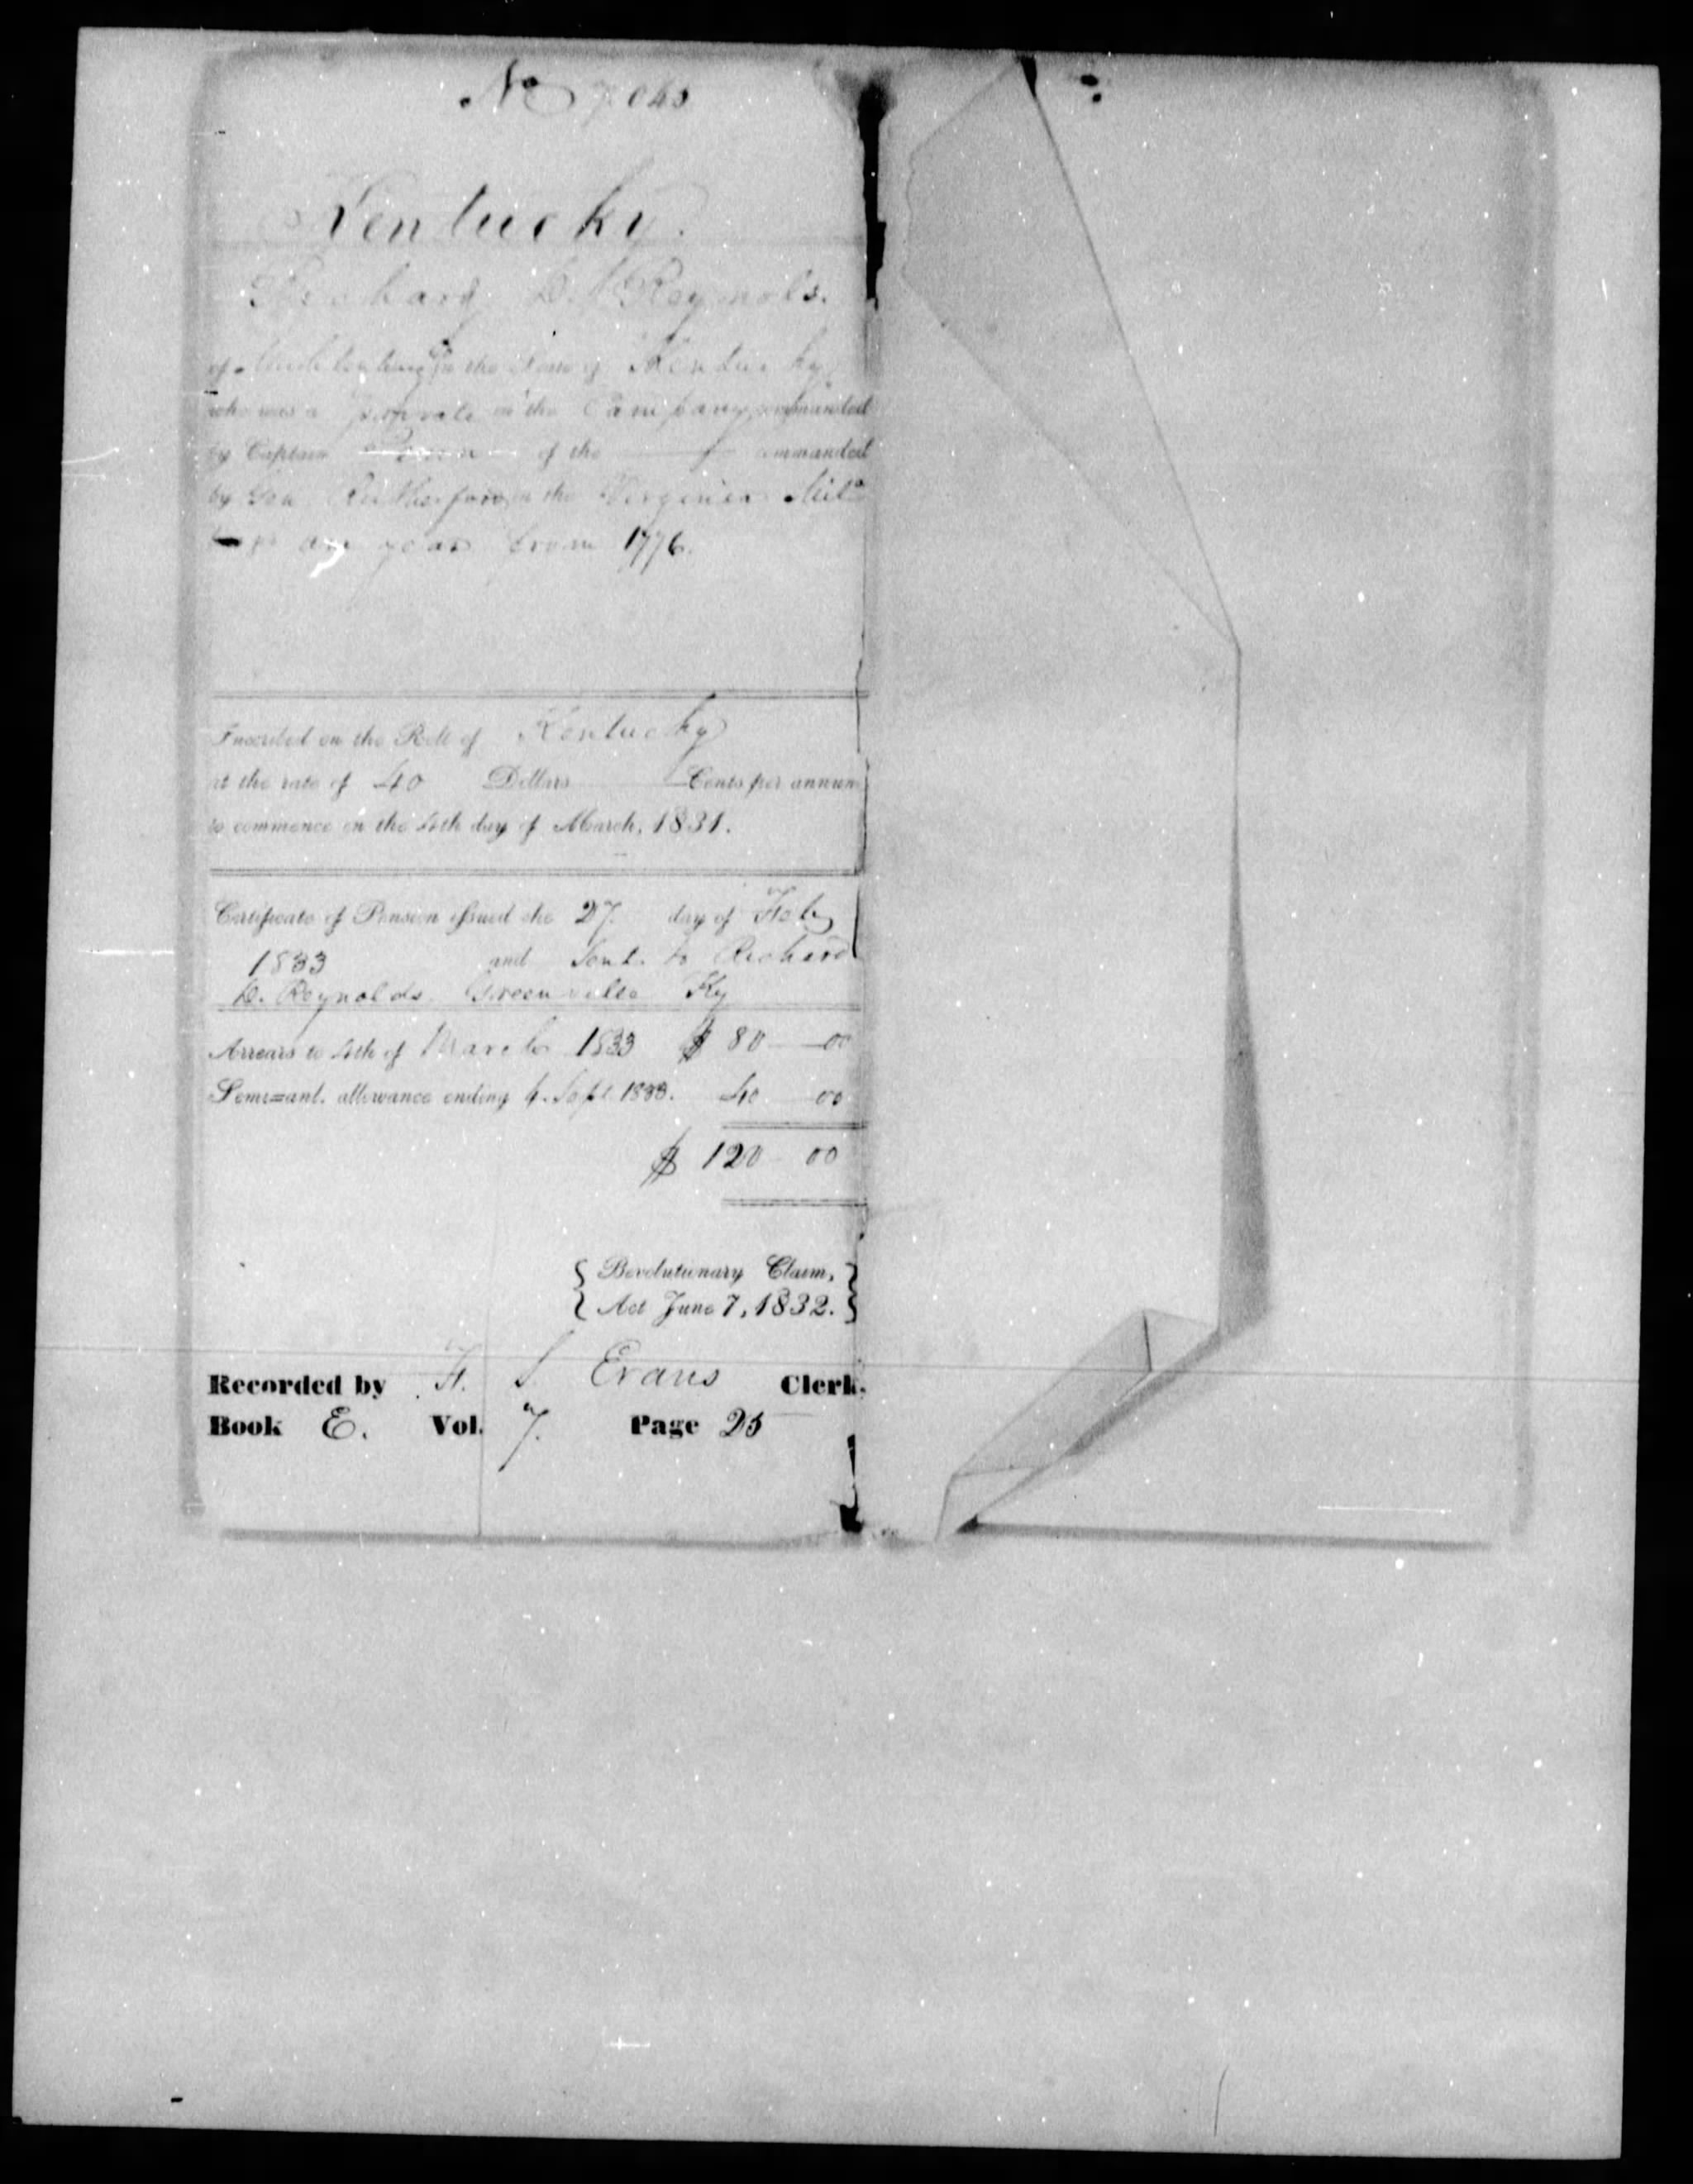 No
Kentucky.
Richard D. Reynols.
of Muhlenburg in the State of Kentucky
who was a private in the Company commanded
by Captain of the commanded
by Gen Rutherford in the Virginia Mila
for one year from 1776.
Inscribed on the Roll of Kentucky
at the rate of 40 Dollars Cents per annum
to commence on the 4th day of March, 1831.
Certificate of Pension issued the 27. day of Feby
1833 and Sent. to Richard
D. Reynolds. Greenville Ky
Arrears to 4th of March 1833 $ 80 00
Semi=anl. allowance ending 4. Sept 1833. 40 00
$ 120 00
{ Revolutionary Claim, }
{ Act June 7, 1832. }
Recorded by S. Evans Clerk,
Book E. Vol. 7. Page 25